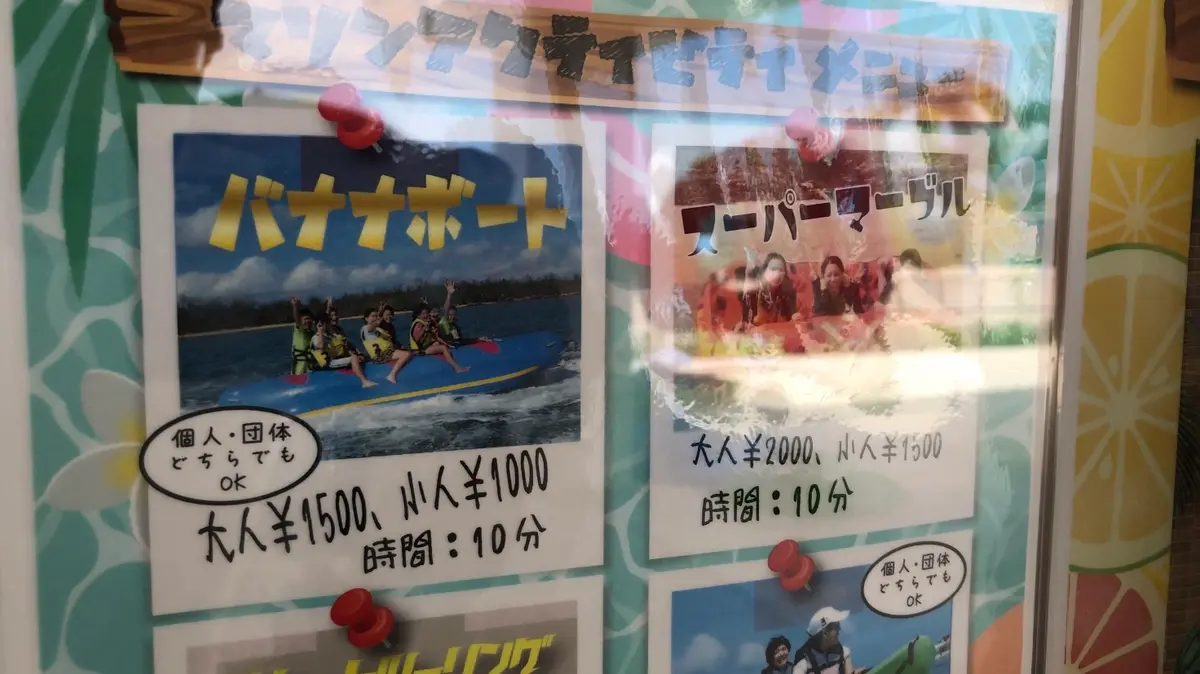 マリンアクティビティメニュー
バナナボート
個人・団体
どちらでも
OK
大人¥1500、小人¥1000
時間：10分
スーパーマーブル
大人¥2000、小人¥1500
時間：10分
個人・団体
どちらでも
OK